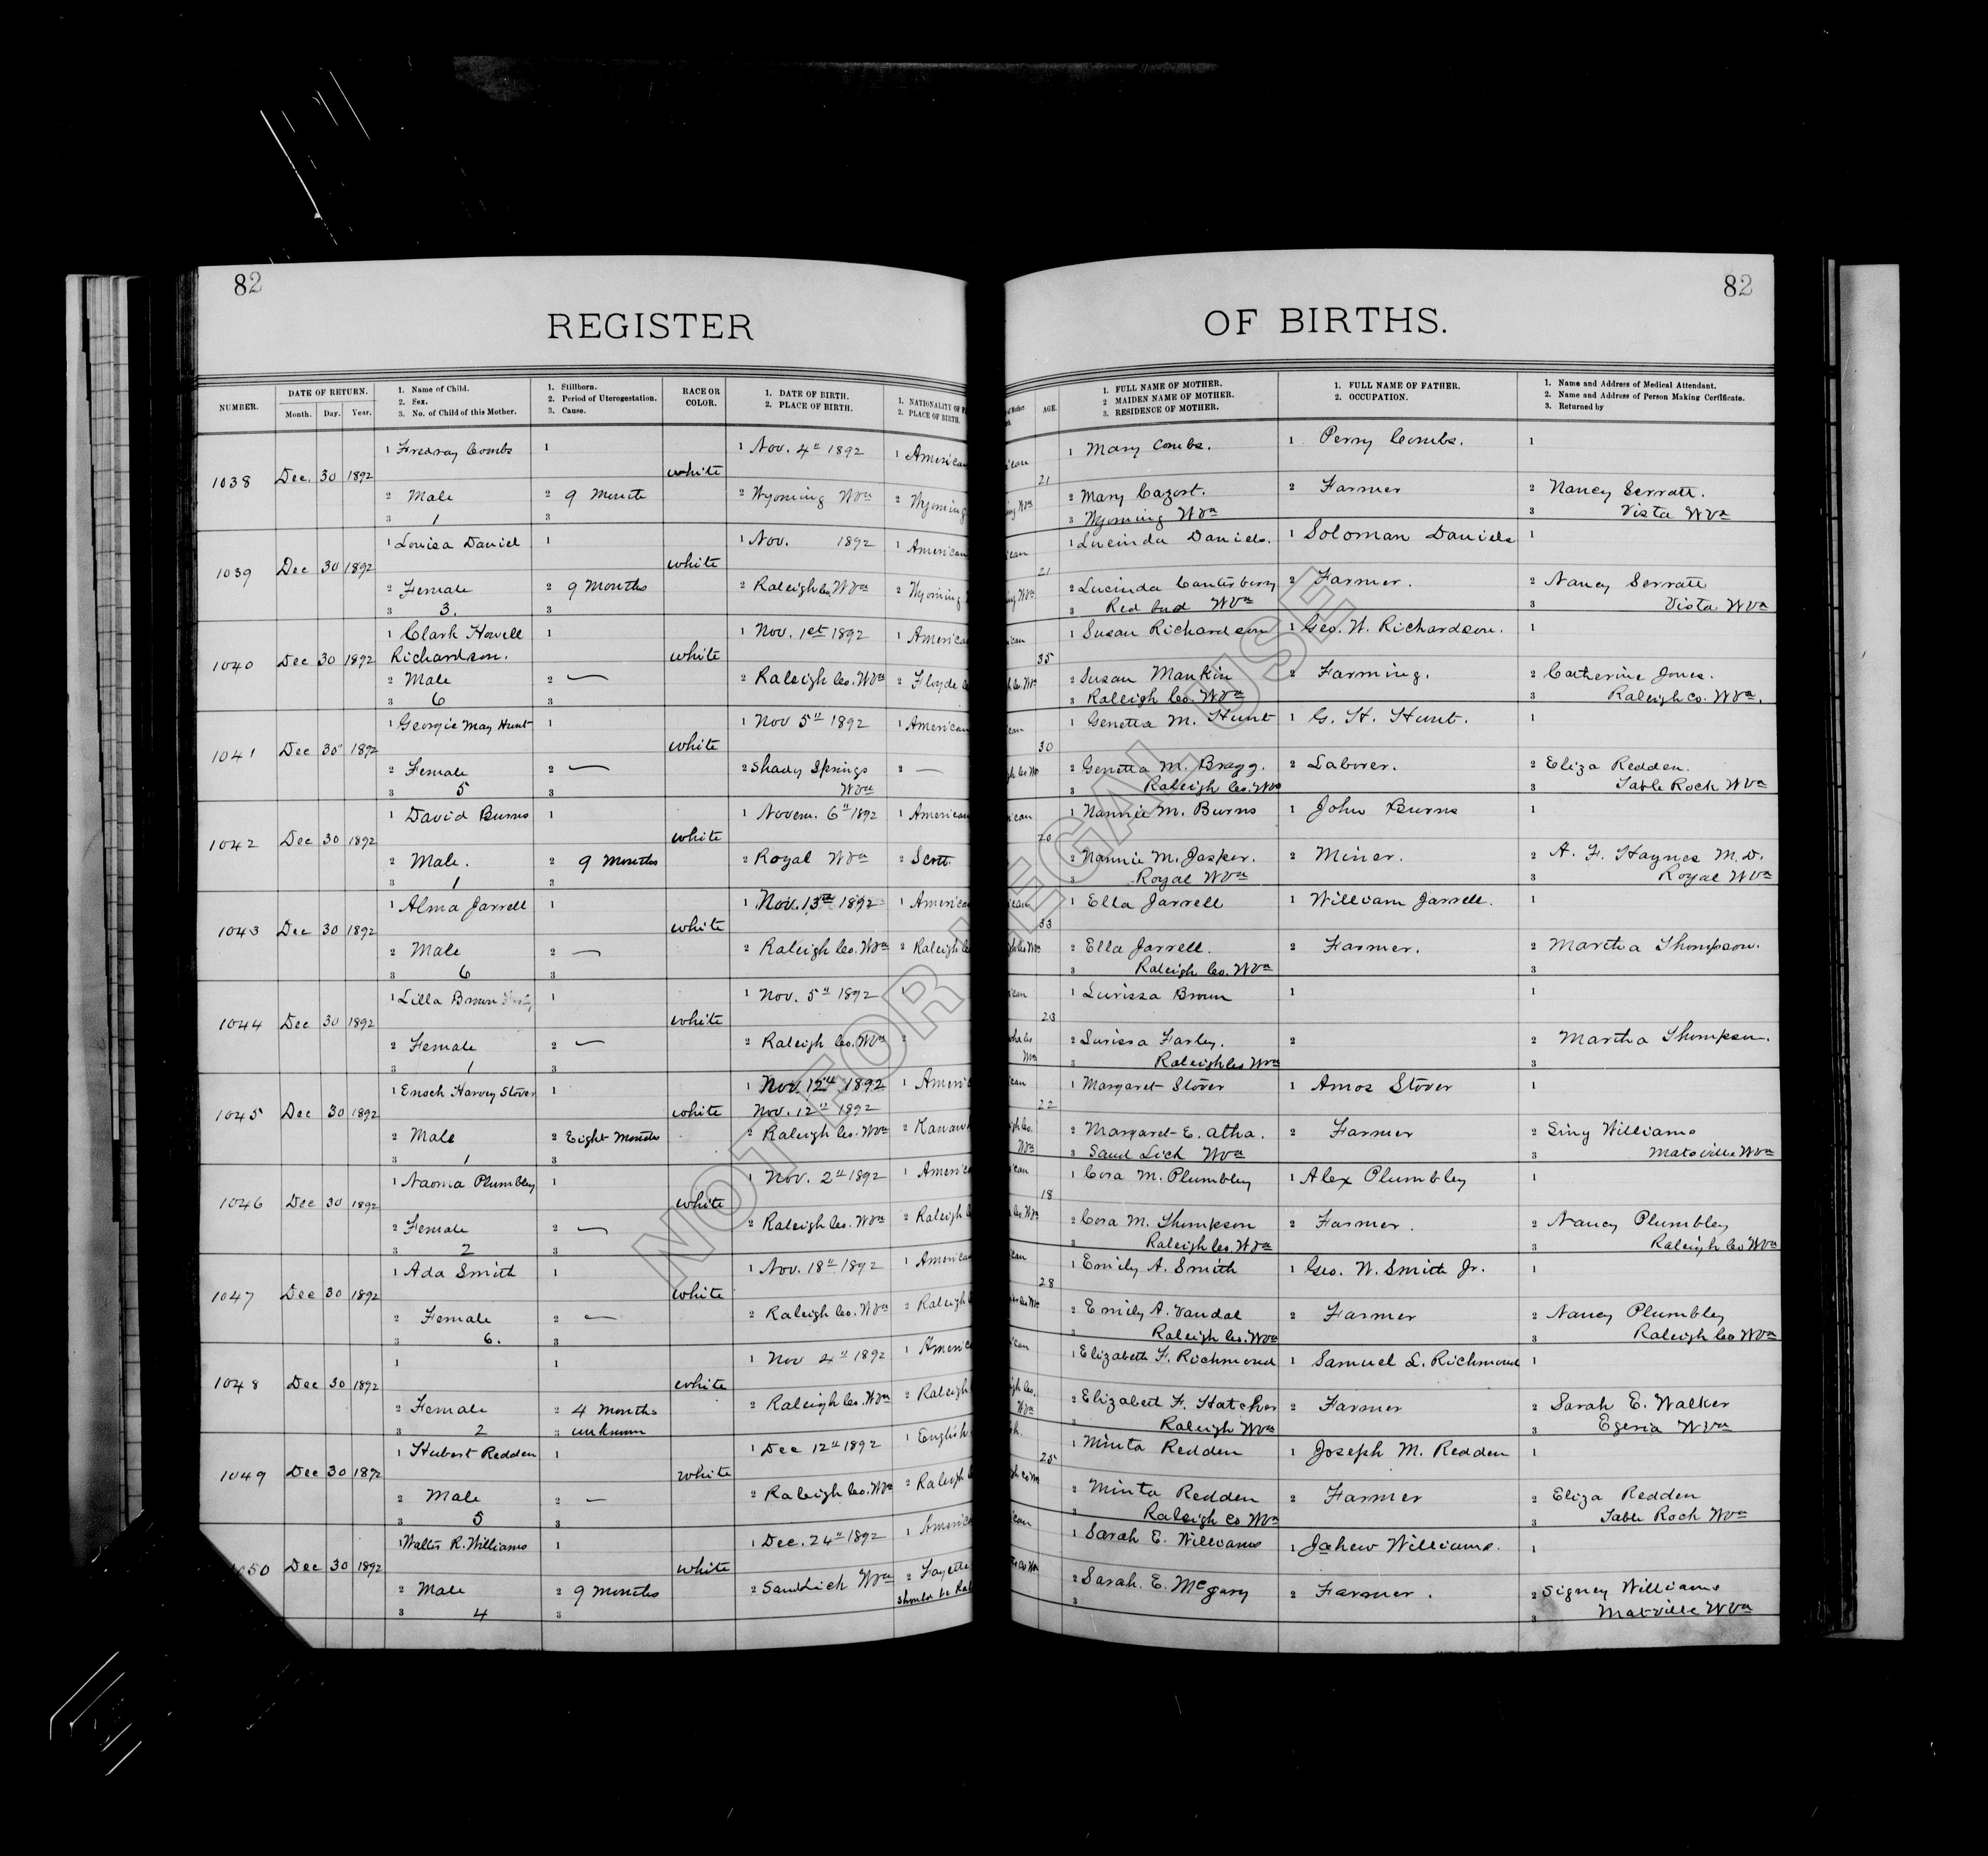 82
82
REGISTER
OF BIRTHS.
NUMBER.
DATE OF RETURN.
Month. Day. Year.
1. Name of Child.
2. Sex.
3. No. of Child of this Mother.
1. Stillborn.
2. Period of Uterogestation.
3. Cause.
RACE OR
COLOR.
1. DATE OF BIRTH.
2. PLACE OF BIRTH.
1. NATIONALITY OF
2. PLACE OF BIRTH.
of Mother
AGE.
1. FULL NAME OF MOTHER.
2 MAIDEN NAME OF MOTHER.
3. RESIDENCE OF MOTHER.
1. FULL NAME OF FATHER.
2. OCCUPATION.
1. Name and Address of Medical Attendant.
2. Name and Address of Person Making Certificate.
3. Returned by
1 Combs 1 1 Nov. 4" 1892 1 American ican 1 Mary Combs. 1 Perry Combs. 1
1038 Dec. 30 1892 white 21
2 Male 2 9 Month 2 Wyoming Wva 2 Wyoming ing Wva 2 Mary 2 Farmer 2 Nancy Serratt.
3 1 3 3 Wyoming Wva 3 Vista Wva
1 Louisa Daniel 1 1 Nov. 1892 1 American ican 1 Lucinda Daniels. 1 Soloman Daniels 1
1039 Dec 30 1892 white 21
2 Female 2 9 Months 2 Raleigh Co. Wva 2 Wyoming ing Wva 2 Lucinda Canterberry 2 Farmer. 2 Nancy Serratt
3 3. 3 3 Red bud Wva 3 Vista Wva
1 Clark Howell 1 1 Nov. 1st 1892 1 American ican 1 Susan Richardson 1 Geo. W. Richardson. 1
1040 Dec 30 1892 Richardson. white 35
2 Male 2 — 2 Raleigh Co. Wva 2 Floyde Co. Wva 2 Susan Mankin 2 Farming. 2 Catherine Jones.
3 6 3 3 Raleigh Co. Wva 3 Raleigh Co. Wva.
1 Georgie May Hunt 1 1 Nov 5" 1892 1 American can 1 Genetta M. Hunt 1 G. H. Hunt. 1
1041 Dec 30" 1892 white 30
2 Female 2 — 2 Shady Springs 2 — 2 Genetta M. Bragg. 2 Laborer. 2 Eliza Redden.
3 5 3 Wva 3 Raleigh Co. Wva 3 Table Rock Wva
1 David Burns 1 1 Novem. 6" 1892 1 American ican 1 Nannie M. Burns 1 John Burns 1
1042 Dec 30 1892 white 20
2 Male. 2 9 Months 2 Royal Wva 2 Scott 2 Nannie M. Jasper. 2 Miner. 2 A. F. Haynes M.D.
3 1 3 3 Royal Wva 3 Royal Wva
1 Alma Jarrell 1 1 Nov. 13th 1892 1 America ican 1 Ella Jarrell 1 William Jarrell. 1
1043 Dec 30 1892 white 33
2 Male 2 — 2 Raleigh Co. Wva 2 Raleigh Co 2 Ella Jarrell. 2 Farmer. 2 Martha Thompson.
3 6 3 3 Raleigh Co. Wva 3
1 Lilla Brown 1 1 Nov. 5" 1892 1 ican 1 Lurissa Brown 1 1
1044 Dec 30 1892 white 23
2 Female 2 — 2 Raleigh Co. Wva 2 2 Lurissa Farley. 2 2 Martha Thompson.
3 1 3 3 Raleigh Co Wva 3
1 Enoch Harvey Stover 1 1 Nov 12" 1892 1 Americ can 1 Margaret Stover 1 Amos Stover 1
1045 Dec 30 1892 white Nov. 12" 1892 22
2 Male 2 Eight Months 2 Raleigh Co. Wva 2 Kanaw 2 Margaret E. Atha. 2 Farmer 2 Siny Williams
3 1 3 3 Sand Lick Wva 3 Matsville Wva
1 Naoma Plumbley 1 1 Nov. 2" 1892 1 America ican 1 Cora M. Plumbley 1 Alex Plumbley 1
1046 Dec 30 1892 white 18
2 Female 2 — 2 Raleigh Co. Wva 2 Raleigh 2 Cora M. Thompson 2 Farmer. 2 Nancy Plumbley
3 2 3 3 Raleigh Co. Wva 3 Raleigh Co Wva
1 Ada Smith 1 1 Nov. 18" 1892 1 American can 1 Emily A. Smith 1 Geo. W. Smith Jr. 1
1047 Dec 30 1892 white 28
2 Female 2 — 2 Raleigh Co. Wva 2 Raleigh 2 Emily A. Vandal 2 Farmer 2 Nancy Plumbley
3 6. 3 3 Raleigh Co. Wva 3 Raleigh Co Wva
1 1 1 Nov 4" 1892 1 Americ ican 1 Elizabeth F. Richmond 1 Samuel L. Richmond 1
1048 Dec 30 1892 white
2 Female 2 4 Months 2 Raleigh Co. Wva 2 Raleigh 2 Elizabett F. Hatcher 2 Farmer 2 Sarah E. Walker
3 2 3 unknown 3 Raleigh Wva 3 Egeria Wva
1 Hubert Redden 1 1 Dec 12" 1892 1 English sh. 1 Minta Redden 1 Joseph M. Redden 1
1049 Dec 30 1892 white 25
2 Male 2 — 2 Raleigh Co. Wva 2 Raleigh 2 Minta Redden 2 Farmer 2 Eliza Redden
3 5 3 3 Raleigh Co Wva 3 Table Rock Wva
1 Walter R. Williams 1 1 Dec. 24" 1892 1 America ican 1 Sarah E. Williams 1 Jahew Williams. 1
1050 Dec 30 1892 white
2 Male 2 9 Months 2 Sandlick Wva 2 Fayette 2 Sarah. E. McGary 2 Farmer. 2 Signey Williams
3 4 3 should be Ral 3 3 Matville Wva
NOT FOR LEGAL USE